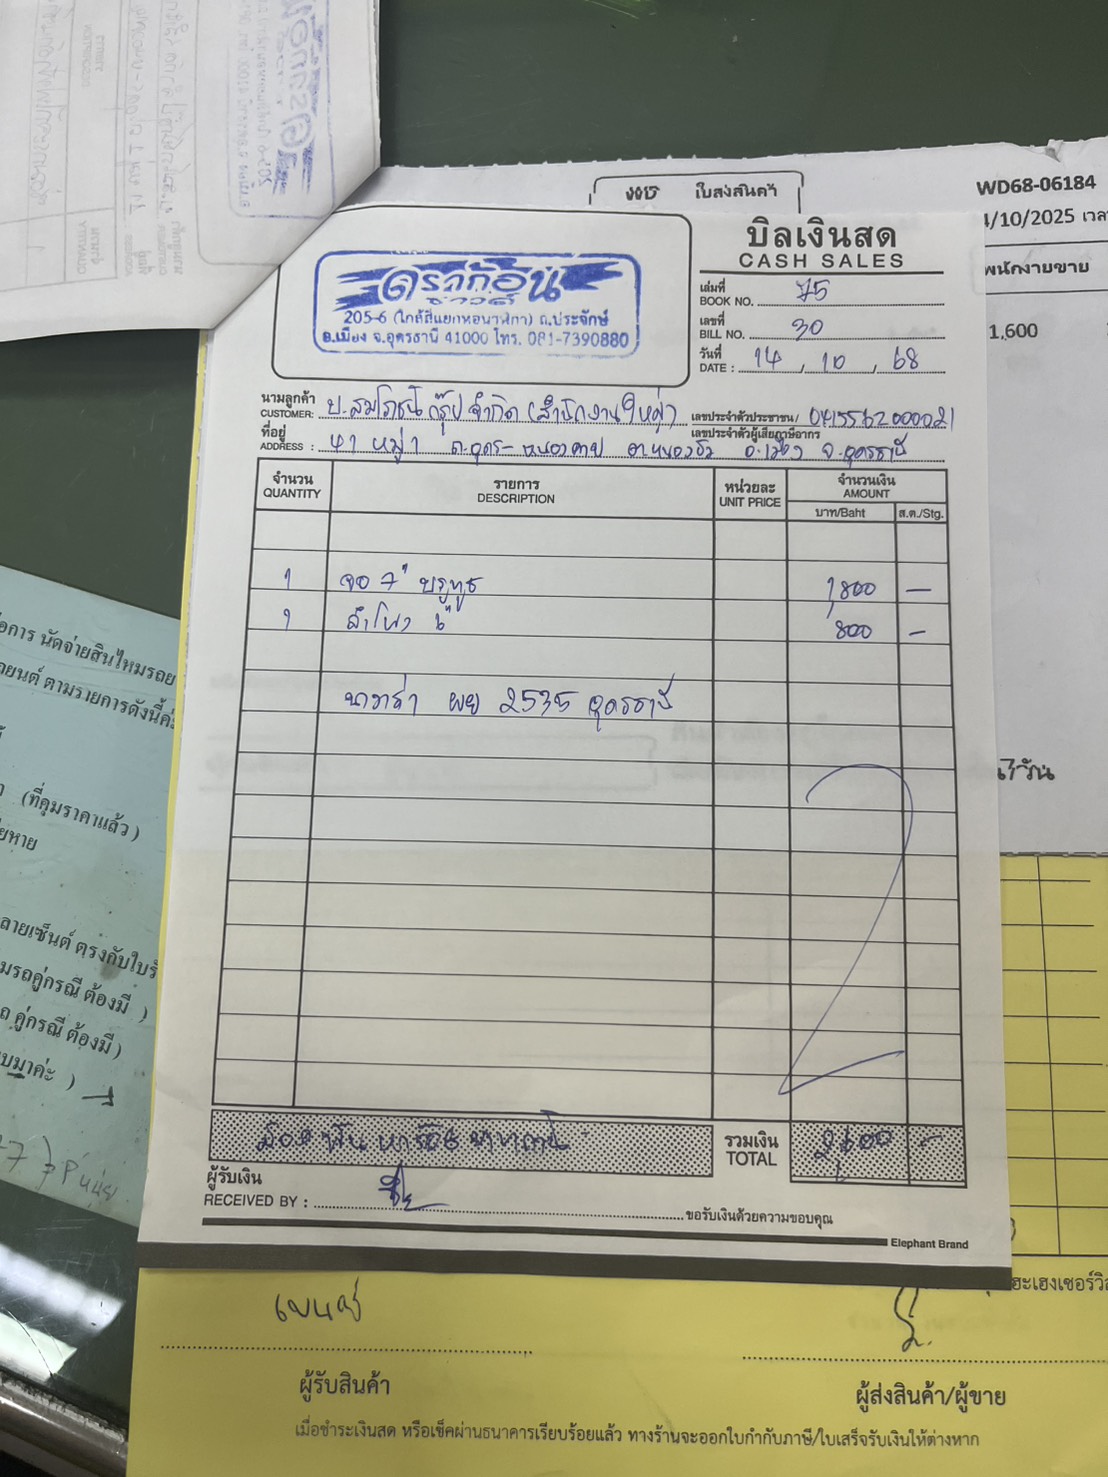 WD68-06184
ใบส่งสินค้า
4/10/2025 เวลา
พนักงานขาย
1,600
ดราก้อน
ซาวด์
205-6 (ใกล้สี่แยกหอนาฬิกา) ถ.ประจักษ์
อ.เมือง จ.อุดรธานี 41000 โทร. 081-7390880
บิลเงินสด
CASH SALES
เล่มที่
BOOK NO. 75
เลขที่
BILL NO. 30
วันที่
DATE : 14 / 10 / 68
นามลูกค้า
CUSTOMER: บ.สมโภชน์ กรุ๊ป จำกัด (สำนักงานใหญ่) เลขประจำตัวประชาชน/
เลขประจำตัวผู้เสียภาษีอากร
ที่อยู่
ADDRESS : หมู่ 1 ถ.อุดร-หนองคาย ต.หมากแข้ง อ.เมือง จ.อุดรธานี
จำนวน
QUANTITY
รายการ
DESCRIPTION
หน่วยละ
UNIT PRICE
จำนวนเงิน
AMOUNT
บาท/Baht ส.ต./Stg.
1 จอ 7" บรูทูธ 1,800 —
1 ลำโพง 6" 800 —
นาวาร่า ผย 2535 อุดรธานี
สองพันหกร้อยบาทถ้วน
รวมเงิน
TOTAL 2,600 —
ผู้รับเงิน
RECEIVED BY :
ขอรับเงินด้วยความขอบคุณ
Elephant Brand
อการ นัดจ่ายสินไหมรถย
ถยนต์ ตามรายการดังนี้ค่
(ที่คุมราคาแล้ว)
ยหาย
ลายเซ็นต์ ตรงกับใบรั
มรถคู่กรณี ต้องมี )
ถ คู่กรณี ต้องมี )
บมาค่ะ )
ฮะเฮงเซอร์วิ
ผู้รับสินค้า
ผู้ส่งสินค้า/ผู้ขาย
เมื่อชำระเงินสด หรือเช็คผ่านธนาคารเรียบร้อยแล้ว ทางร้านจะออกใบกำกับภาษี/ใบเสร็จรับเงินให้ต่างหาก